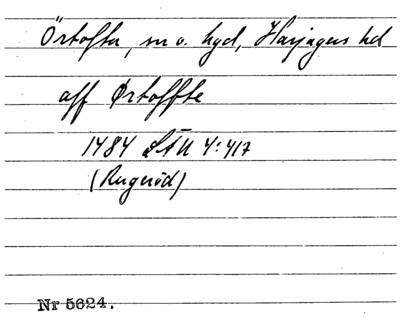 Örtofta, sn o. hgd, Harjagers hd
aff Ørtoffte
1484 LÄU 4:417
(Rugeröd)
Nr 5624.